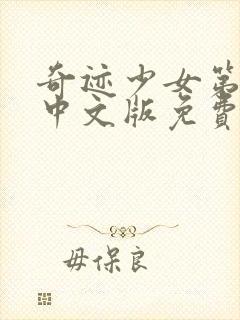 奇迹少女第
中文版免费
毋保良